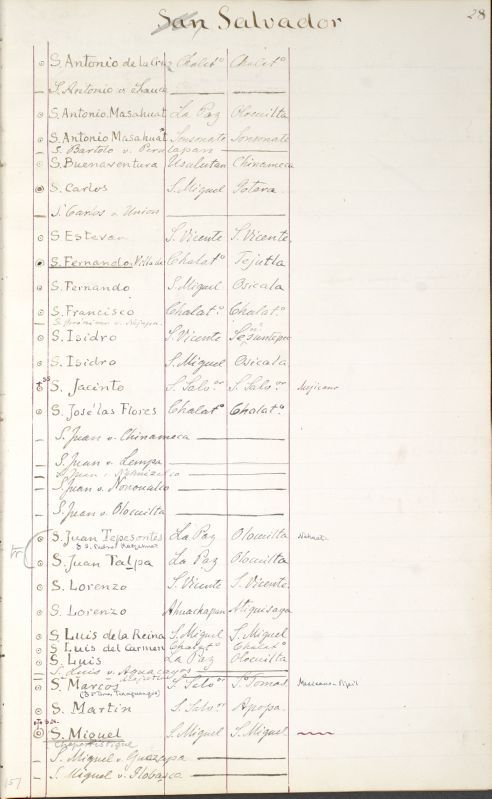 San Salvador 28
S. Antonio de la Cruz Chalatº Chalatº
S. Antonio v. Sauce
S. Antonio Masahuat La Paz Olocuilta
S. Antonio Masahuat Sonsonate Sonsonate
S. Bartolo v. Perulapan
S. Buenaventura Usulutan Chinameca
S. Carlos S. Miguel Gotera
S. Carlos v. Union
S. Estevan S. Vicente S. Vicente
S. Fernando, Villa de Chalatº Tejutla
S. Fernando S. Miguel Osicala
S. Francisco Chalatº Chalatº
S. Jerónimo v. Nejapa
S. Isidro S. Vicente
S. Isidro S. Miguel Osicala
S. Jacinto S. Salvºr S. Salvºr Mejicano
S. José las Flores Chalatº Chalatº
S. Juan v. Chinameca
S. Juan v. Lempa
S. Juan v. Nahuizalco
S. Juan v. Nonoualco
S. Juan v. Olocuilta
S. Juan Tepesontes La Paz Olocuilta Nahuatl
S. Juan Talpa La Paz Olocuilta
S. Lorenzo S. Vicente S. Vicente
S. Lorenzo Ahuachapan Atiquisaya
S. Luis de la Reina S. Miguel S. Miguel
S. Luis del Carmen Chalatº Chalatº
S. Luis La Paz Olocuilta
S. Luis v. Aguacayos
S. Marcos S. Salvº Sº Tomas Mexicano-Pipil
S. Martin S. Salvºr Apopa
S. Miguel S. Miguel S. Miguel
Chaparristique
S. Miguel v. Guazapa
S. Miguel v. Ilobasco
157